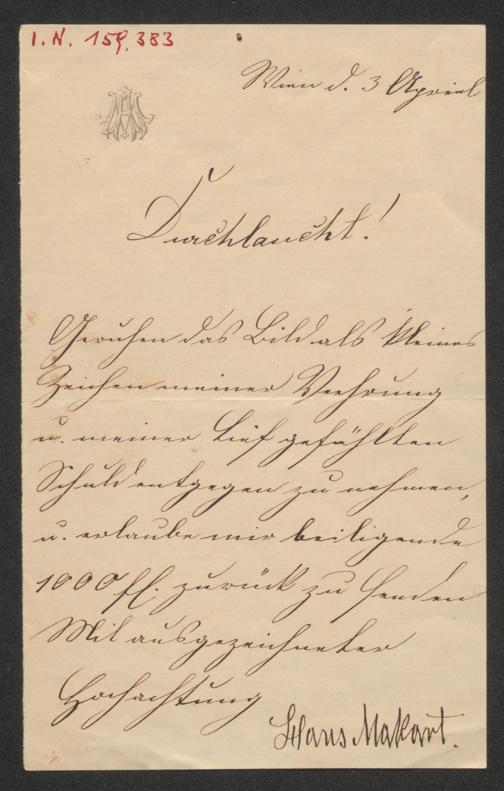 I.N. 159.383
Wien d. 3 Apriel
Durchlaucht!
Geruhen das Bild als kleines
Zeichen meiner Verehrung
u. meiner tief gefühlten
Schuld entgegen zu nehmen,
u. erlaube mir beiligende
1000 fl. zurück zu senden
Mit ausgezeichneter
Hochachtung
Hans Makart.